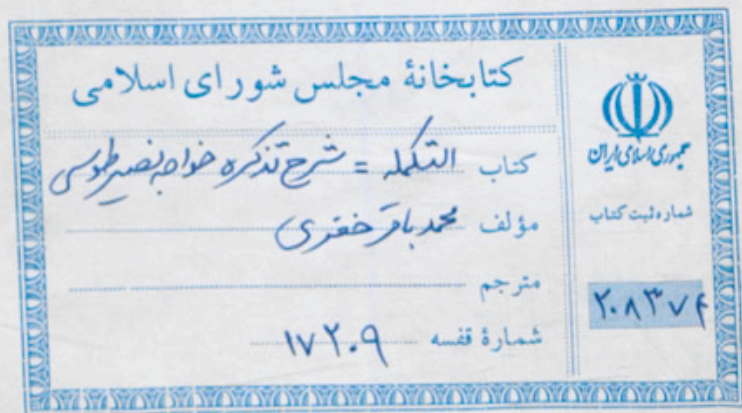 کتابخانهٔ مجلس شورای اسلامی
کتاب التکمله = شرح تذکره خواجه نصیر طوسی
مؤلف محمد باقر خفری
مترجم
شمارهٔ قفسه ۱۷۲۰۹
جمهوری اسلامی ایران
شماره ثبت کتاب
۲۰۸۳۷۴